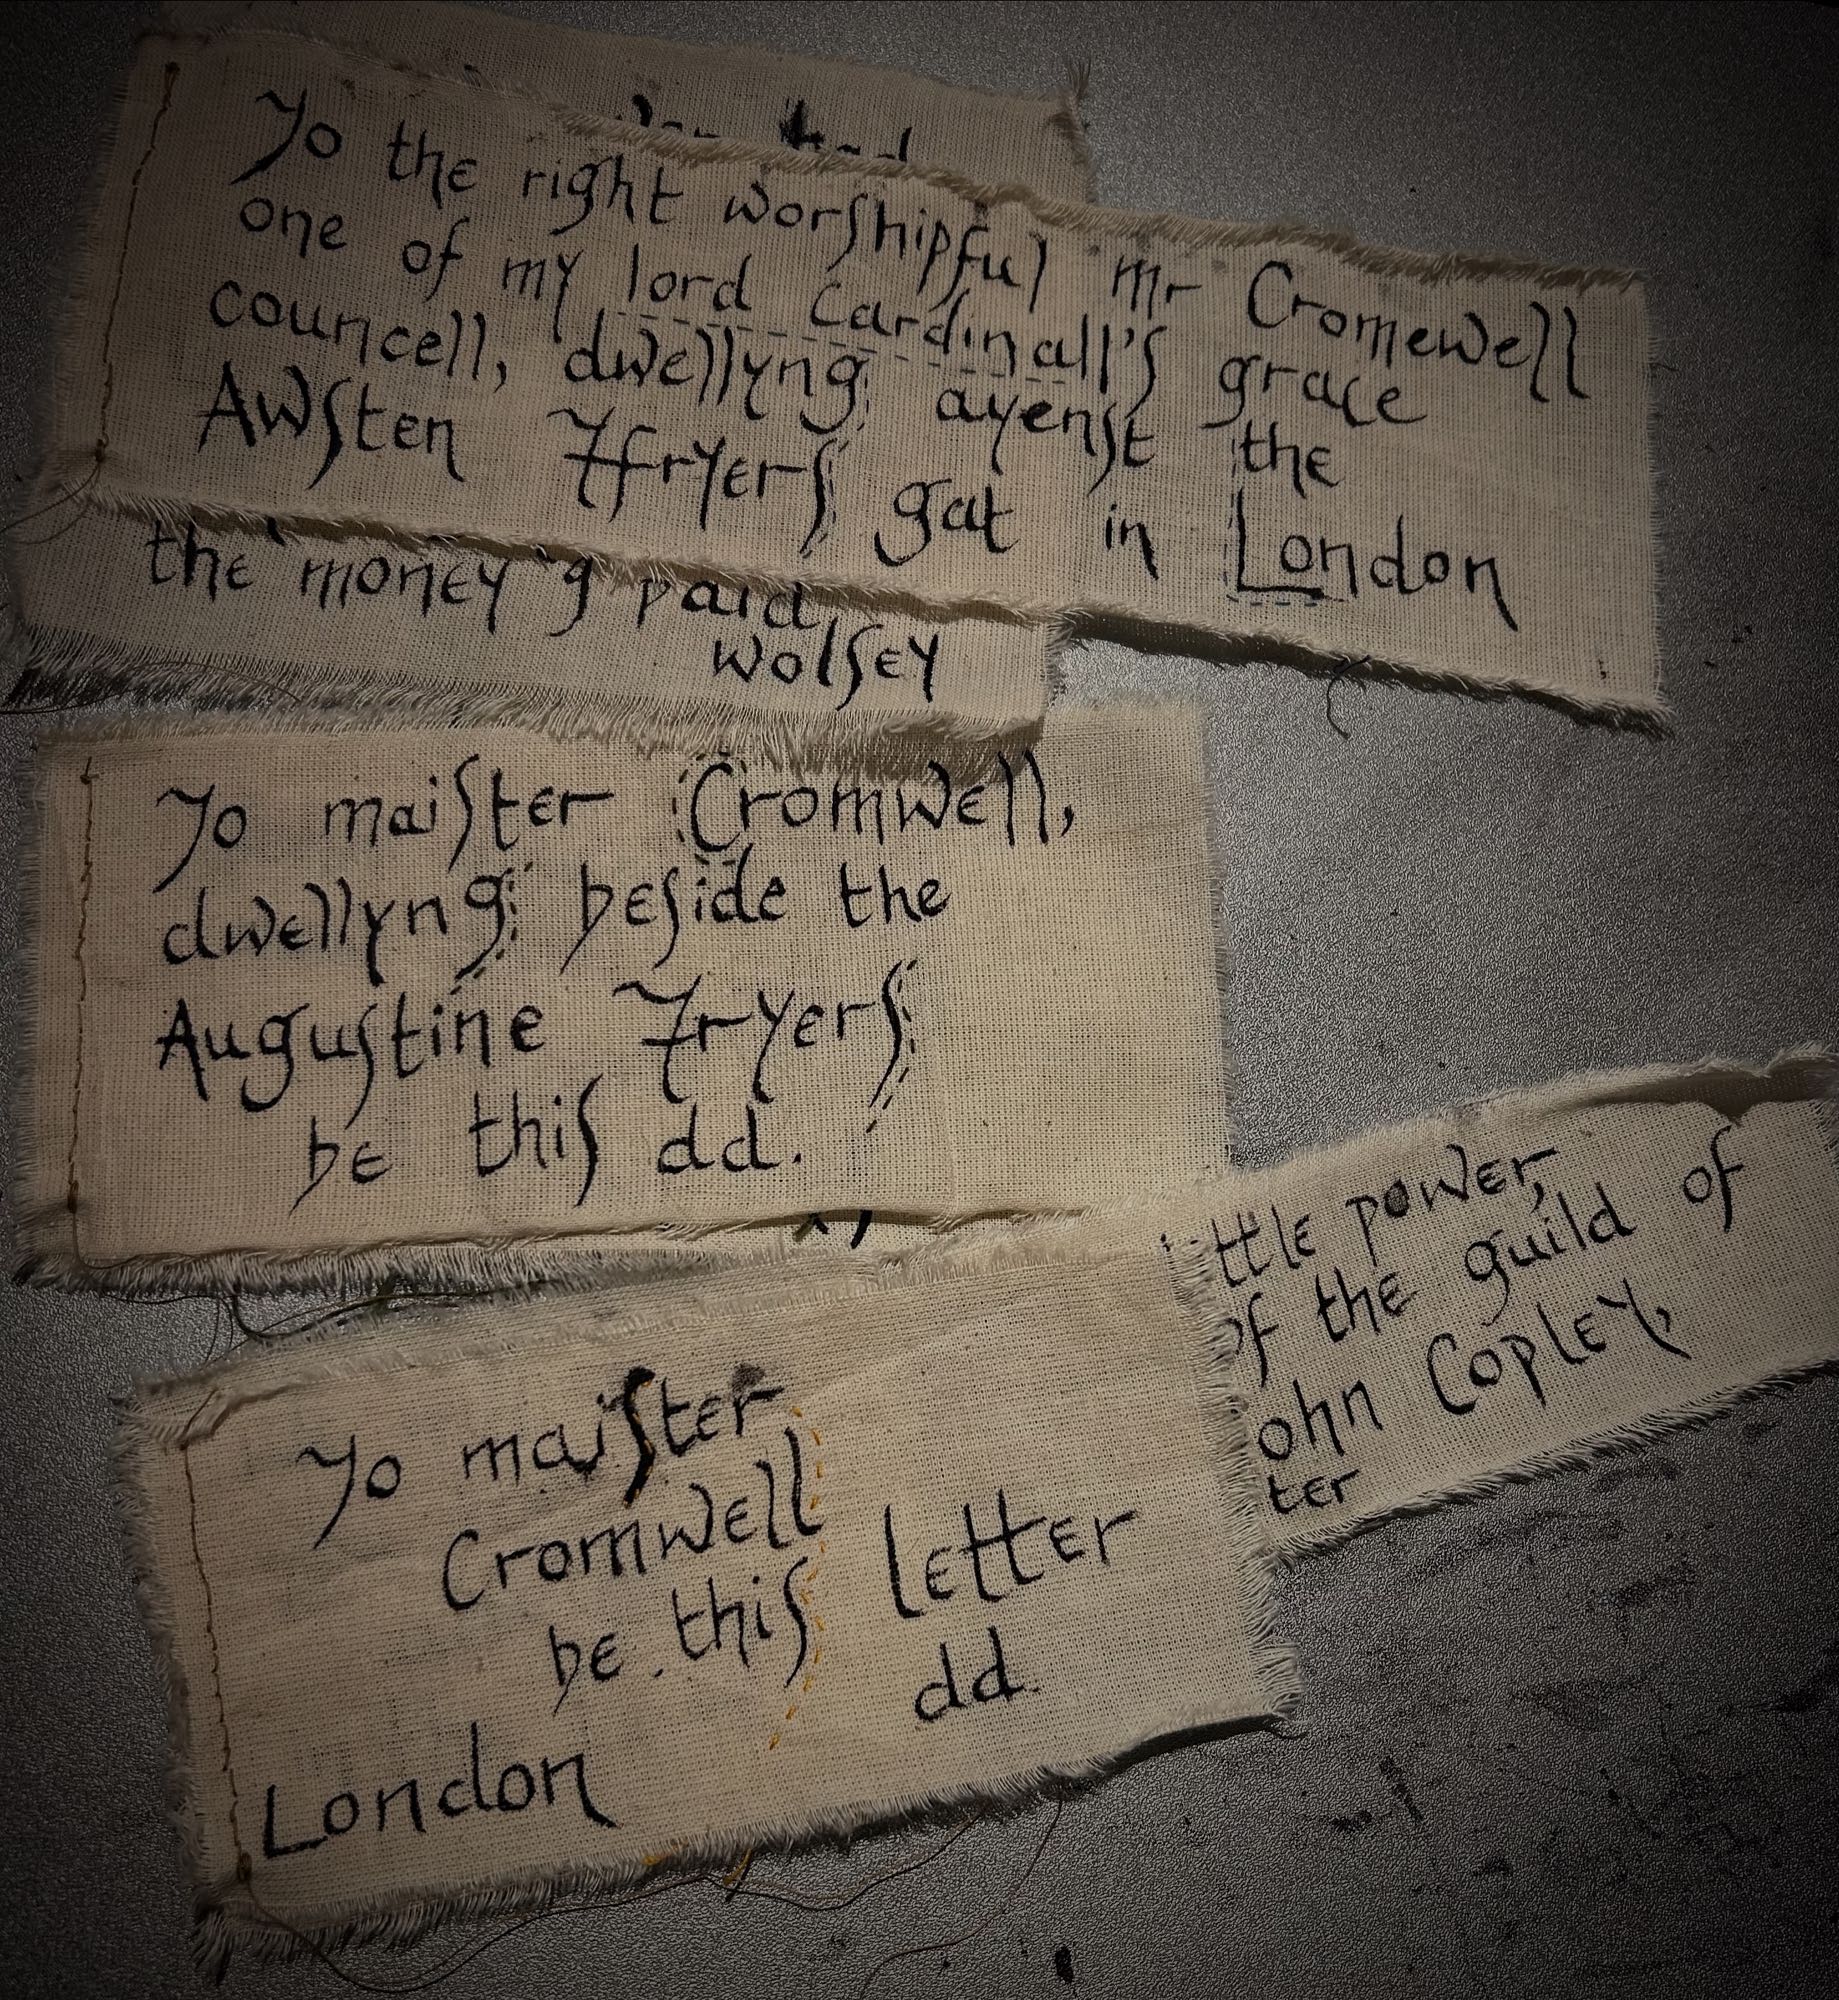 To the right worshipful mr Cromewell
one of my lord cardinall's grace
councell, dwellyng ayenst the
Awsten ffryers gat in London
the money g paid,
Wolsey
To maister Cromwell,
dwellyng beside the
Augustine Fryers
be this dd.
ttle power,
of the guild of
ohn Copley,
ter
To maister
Cromwell
be this letter
dd.
London